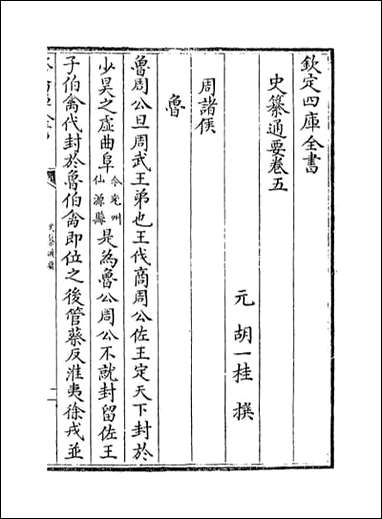 欽定四庫全書
史纂通要卷五
元 胡一桂 撰
周諸侯
魯
魯周公旦周武王弟也王代商周公佐王定天下封於
少昊之虛曲阜今兗州仙源縣是為魯公周公不就封留佐王
子伯禽代封於魯伯禽即位之後管蔡反淮夷徐戎並